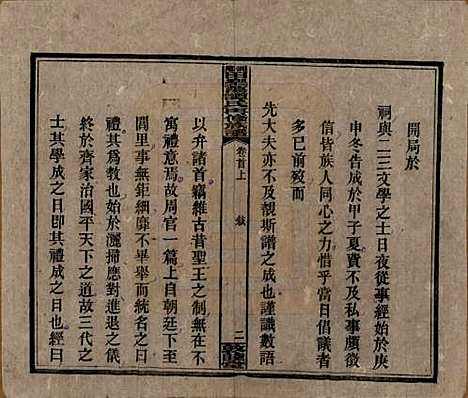 開局於
祠與二三文學之士日夜從事經始於庚
申冬告成於甲子夏費不及私事頗徵
信皆族人同心之力惜乎當日倡議者
多已前歿而
先大夫亦不及覩斯譜之成也謹識數語
卷首上
敍
二
以弁諸首竊維古昔聖王之制無在不
寓禮意焉故周官一篇上自朝廷下至
閭里事無鉅細靡不畢舉而統名之曰
禮其爲敎也始於灑掃應對進退之儀
終於齊家治國平天下之道故三代之
士其學成之日卽其禮成之日也經曰